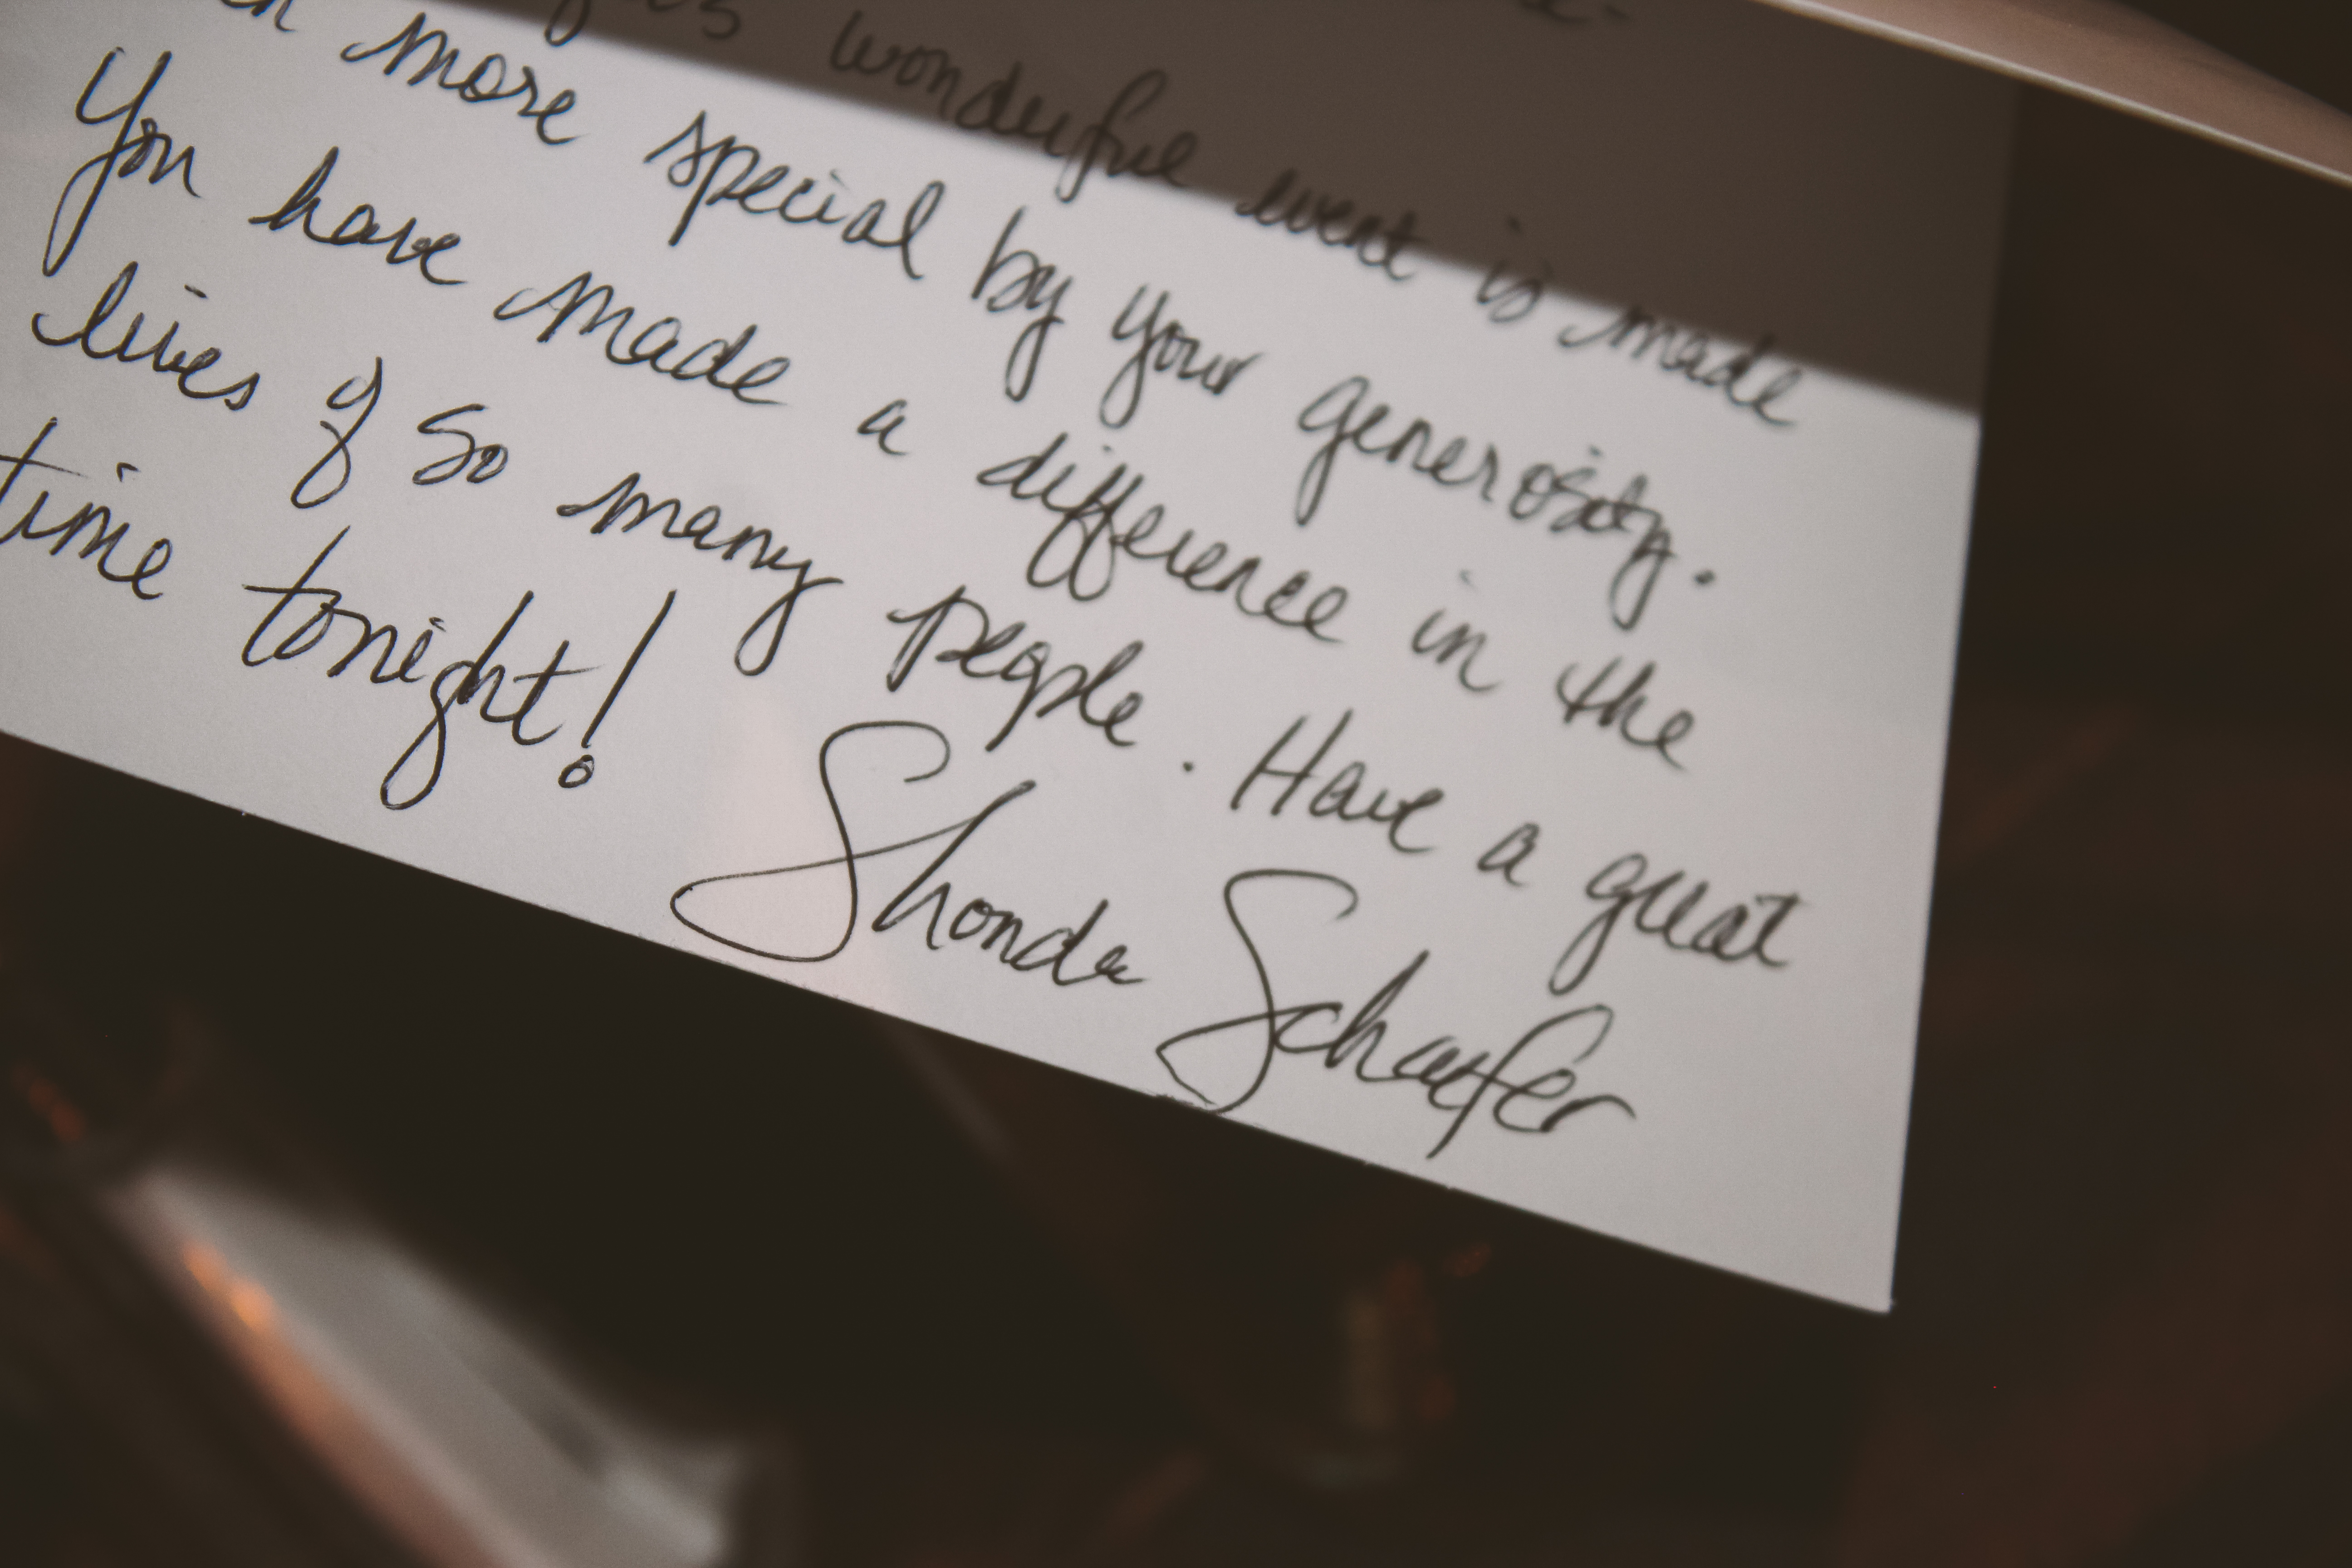 wonderful event is made
more special by your generosity.
You have made a difference in the
lives of so many people. Have a great
time tonight!
Shonda Schaefer